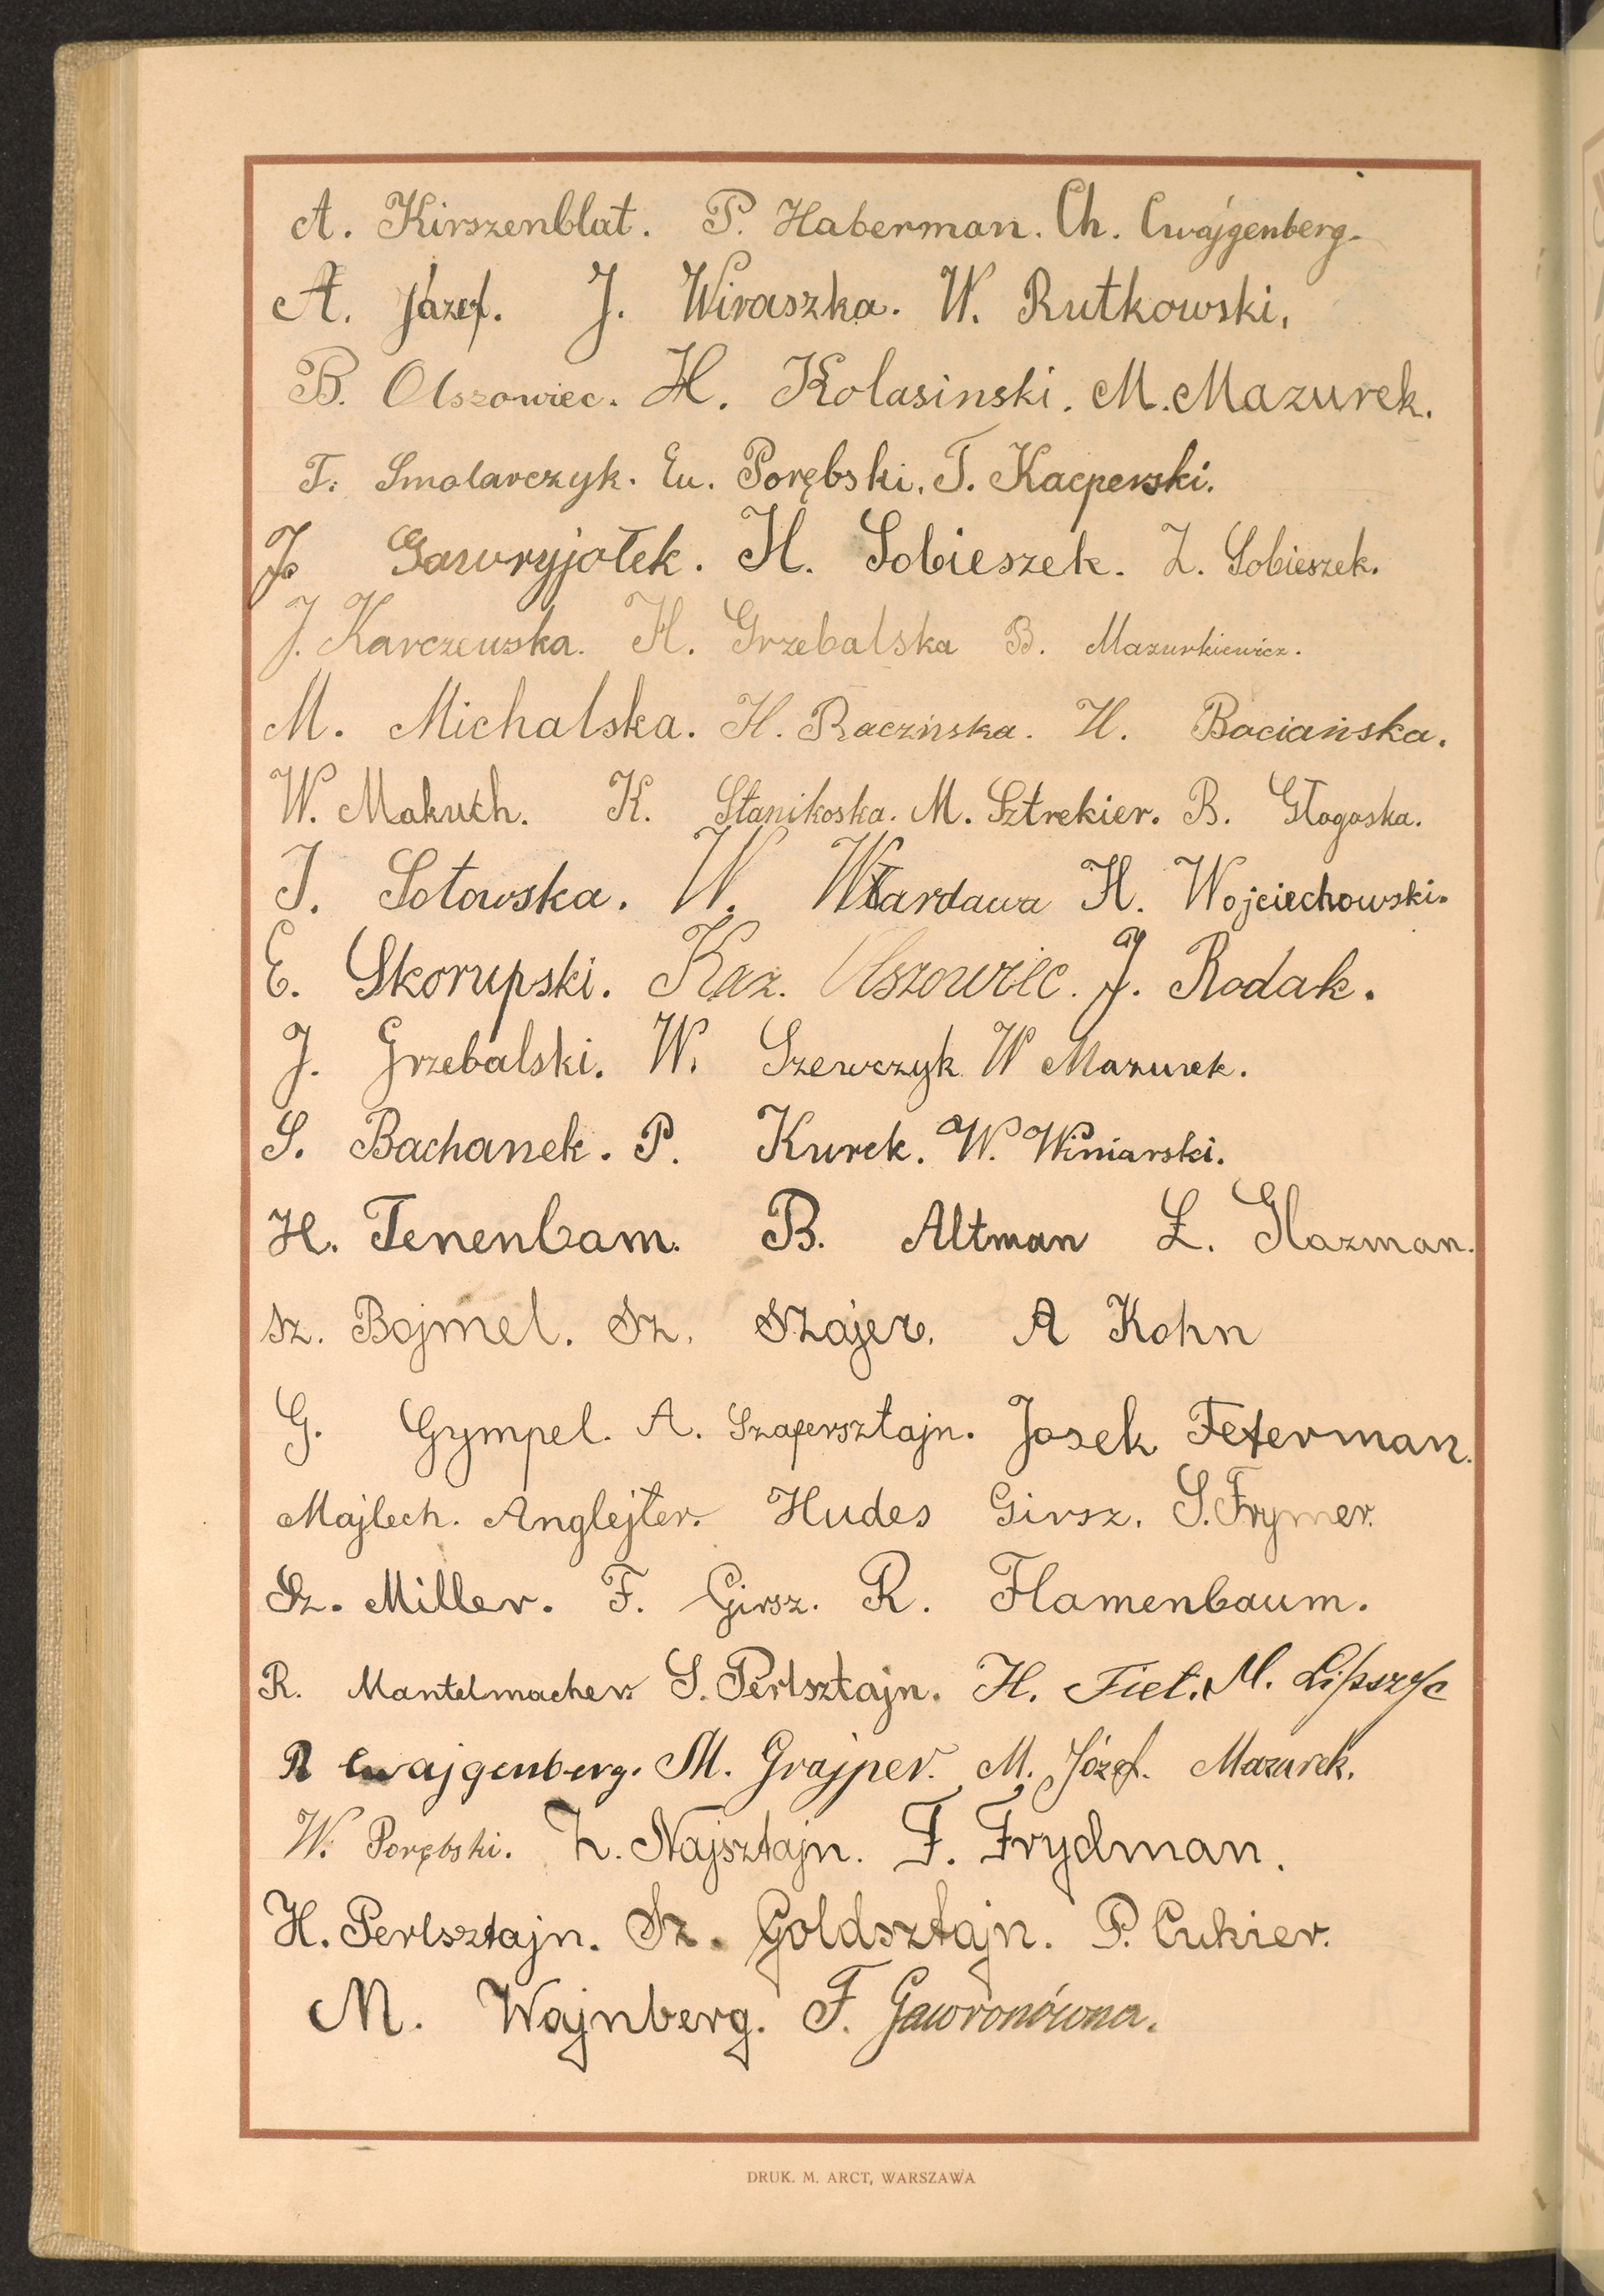 A. Kirszenblat. P. Haberman. Ch. Cwajgenberg.
A. Józef. J. Wiraszka. W. Rutkowski.
B. Olszowiec. H. Kolasinski. M. Mazurek.
T. Smolarczyk. Eu. Porębski. T. Kacperski.
J. Gawryjołek. H. Sobieszek. Z. Sobieszek.
J. Karczewska. H. Grzebalska B. Mazurkiewicz.
M. Michalska. H. Raczńska. H. Bociańska.
W. Makuch. K. Stanikoska. M. Sztrekier. B. Głogoska.
J. Sotowska. W. Wardawa H. Wojciechowski.
E. Skorupski. Kaz. Olszowiec. J. Rodak.
J. Grzebalski. W. Szewczyk W Mazurek.
S. Bachanek. P. Kurek. W. Winiarski.
H. Tenenbam. B. Altman Ł. Glazman.
Sz. Bojmel. Sz. Szajer. A Kohn
G. Gympel. A. Szafersztajn. Josek Feterman.
Majlech. Anglejter. Hudes Girsz. S. Frymer.
Sz. Miller. F. Girsz. R. Flamenbaum.
R. Mantelmacher. S. Perlsztajn. H. Fiet. M. Lipszyc
R Cwajgenberg. M. Grajper. M. Józef. Mazurek.
W. Porębski. Z. Najsztajn. F. Frydman.
H. Perlsztajn. Sz. Goldsztajn. P. Cukier.
M. Wajnberg. F. Gawronówna.
DRUK. M. ARCT, WARSZAWA